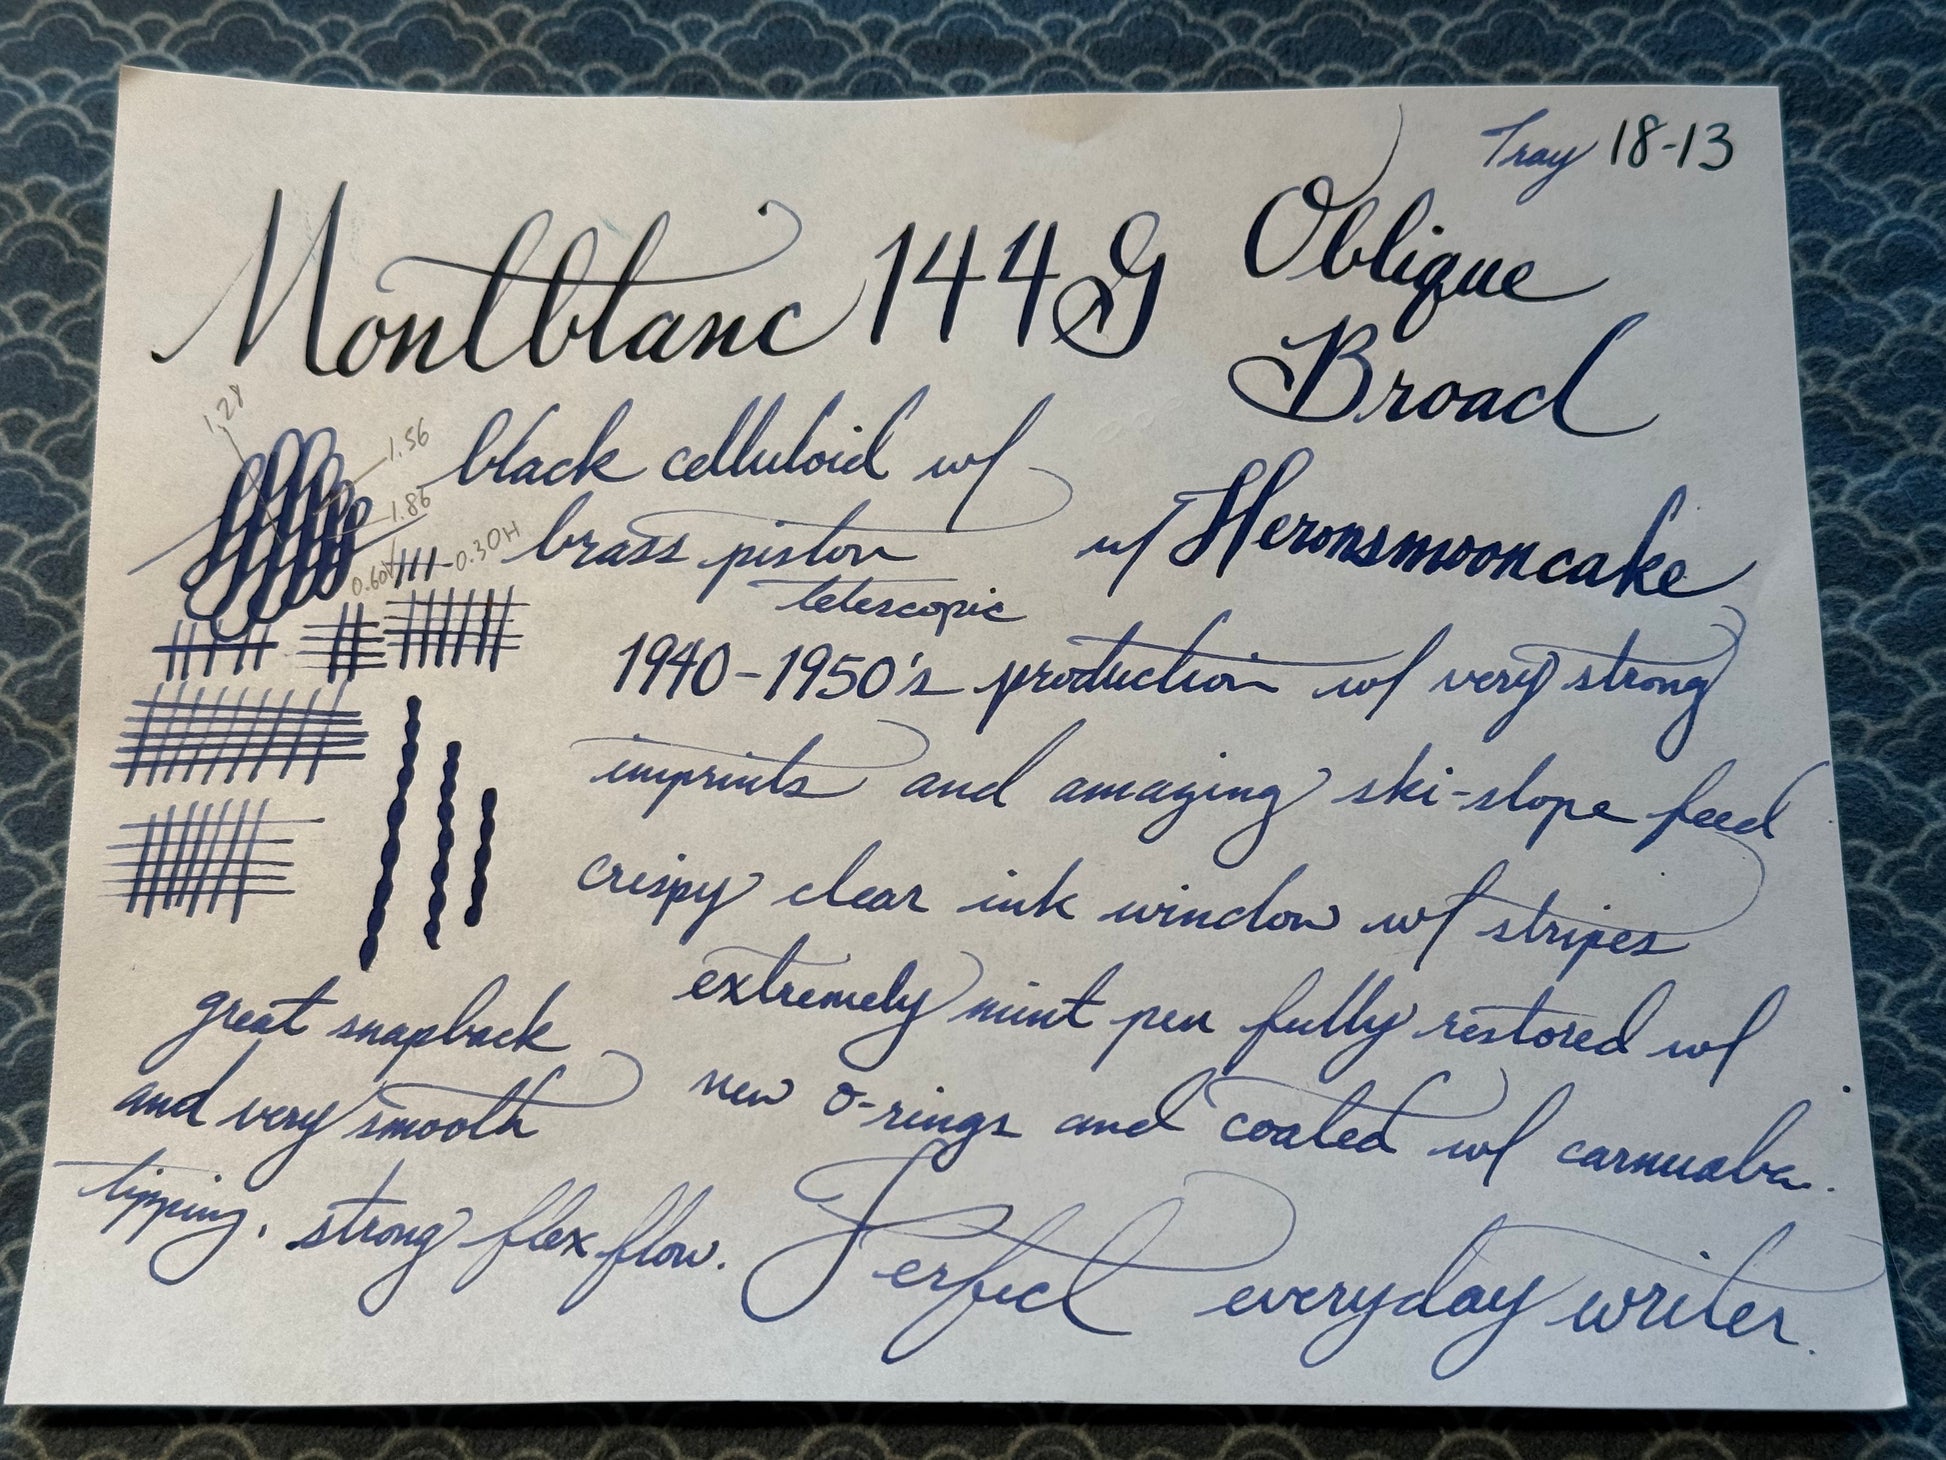 Tray 18-13
Montblanc 144G Oblique
Broad
1.28
1.56
1.86
black celluloid w/
brass piston
telescopic
w/ Heronsmooncake
0.60V
0.30H
1940-1950's production w/ very strong
imprints and amazing ski-slope feed
crispy clear ink window w/ stripes
extremely mint pen fully restored w/
new o-rings and coated w/ carnuaba.
great snapback
and very smooth
tipping, strong flex flow.
Perfect everyday writer.